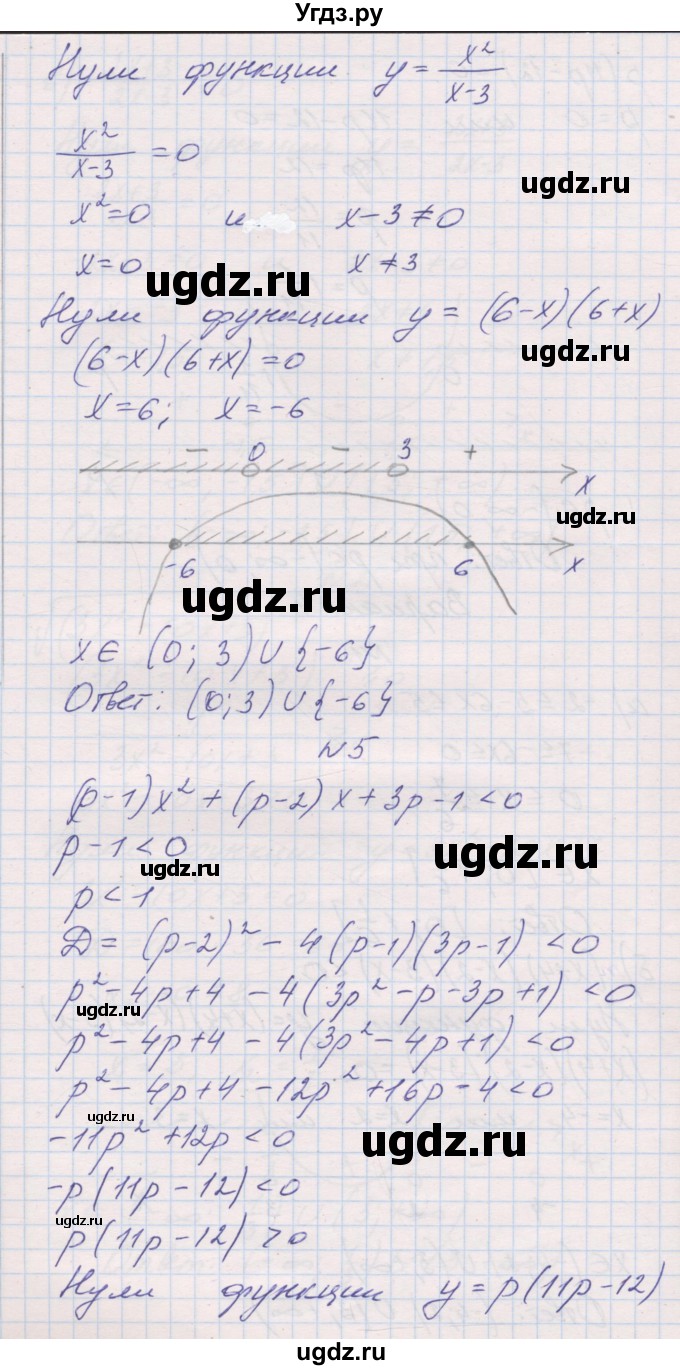 Угдз.ру
Нули функции y = x²/(x-3)
x²/(x-3) = 0
x² = 0 и x-3 ≠ 0
ugdz.ru
x = 0 x ≠ 3
ugdz.ru
Нули функции y = (6-x)(6+x)
ugdz.ru
(6-x)(6+x) = 0
x = 6; x = -6
- 0 - 3 +
x
ugdz.ru
-6 6 x
ugdz.ru
x ∈ (0; 3) ∪ {-6}
Ответ: (0; 3) ∪ {-6}
N5
(p-1)x² + (p-2)x + 3p-1 < 0
p-1 < 0
ugdz.ru
ugdz.ru
p < 1
D = (p-2)² - 4(p-1)(3p-1) < 0
p² - 4p + 4 - 4(3p² - p - 3p + 1) < 0
ugdz.ru
p² - 4p + 4 - 4(3p² - 4p + 1) < 0
p² - 4p + 4 - 12p² + 16p - 4 < 0
ugdz.ru
-11p² + 12p < 0
ugdz.ru
-p(11p - 12) < 0
ugdz.ru
p(11p - 12) > 0
Нули функции y = p(11p - 12)
ugdz.ru